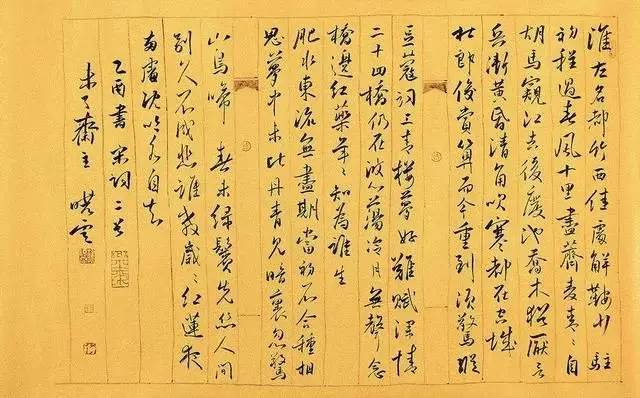 淮左名都竹西佳處解鞍少駐
初程過春風十里盡薺麦青〻自
胡馬窺江去後廢池喬木猶厭言
兵漸黄昏清角吹寒都在空城
杜郎俊賞算而今重到須驚縱
豆蔻詞工青楼夢好難賦深情
二十四橋仍在波心蕩冷月無聲念
橋邊紅藥年〻知為誰生
肥水東流無盡期當初不合種相
思夢中未比丹青見暗裏忽驚
山鳥啼 春未緑鬢先絲人間
别久不成悲誰教歲〻紅蓮夜
兩處沈吟各自知
乙酉書宋詞二首
未〻齋主 曉雲